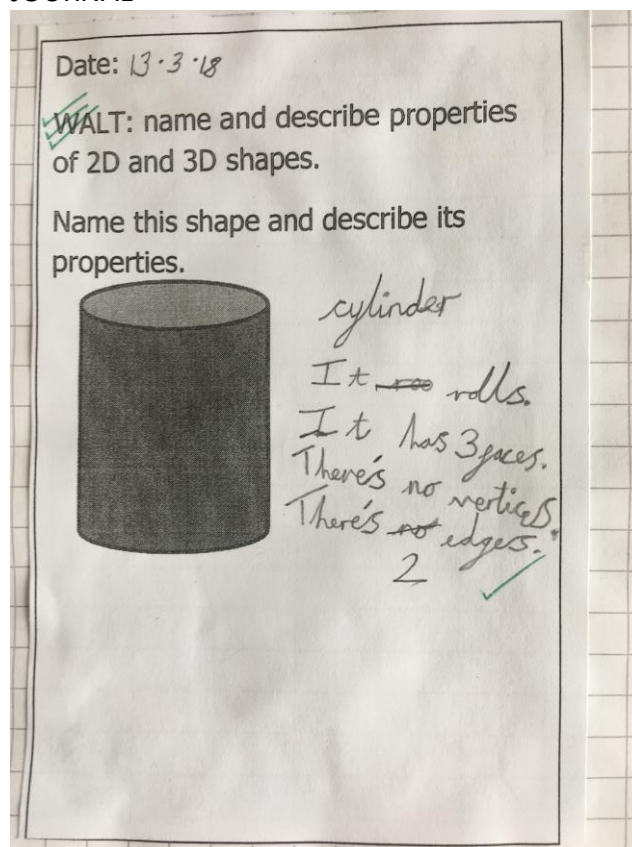 Date: 13.3.18
WALT: name and describe properties
of 2D and 3D shapes.
Name this shape and describe its
properties.
cylinder
It rolls.
It has 3 faces.
There's no vertices
There's no edgers.
2